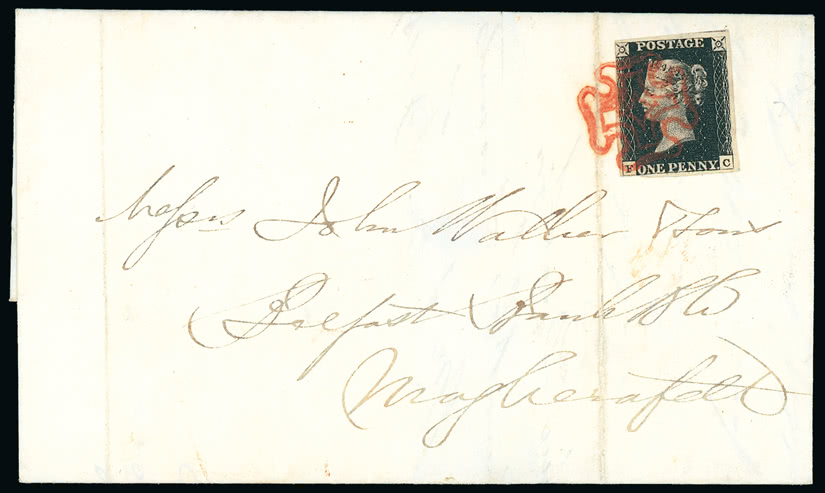 POSTAGE
F ONE PENNY. C
Messrs John Walker & Sons
Belfast Bank
Magherafelt